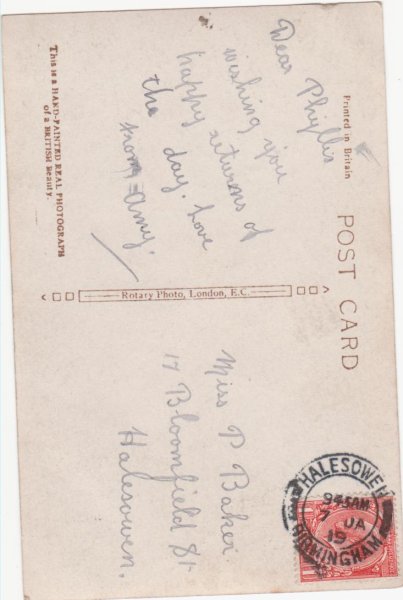 POST CARD
Printed in Britain
This is a HAND-PAINTED REAL PHOTOGRAPH
of a BRITISH Beauty.
Dear Phyllis
wishing you
happy returns of
the day. Love
from Amy.
Rotary Photo, London, E.C.
Miss P Baker
17 Bloomfield St
Halesowen.
HALESOWEN
945AM
7 JA
19
BIRMINGHAM